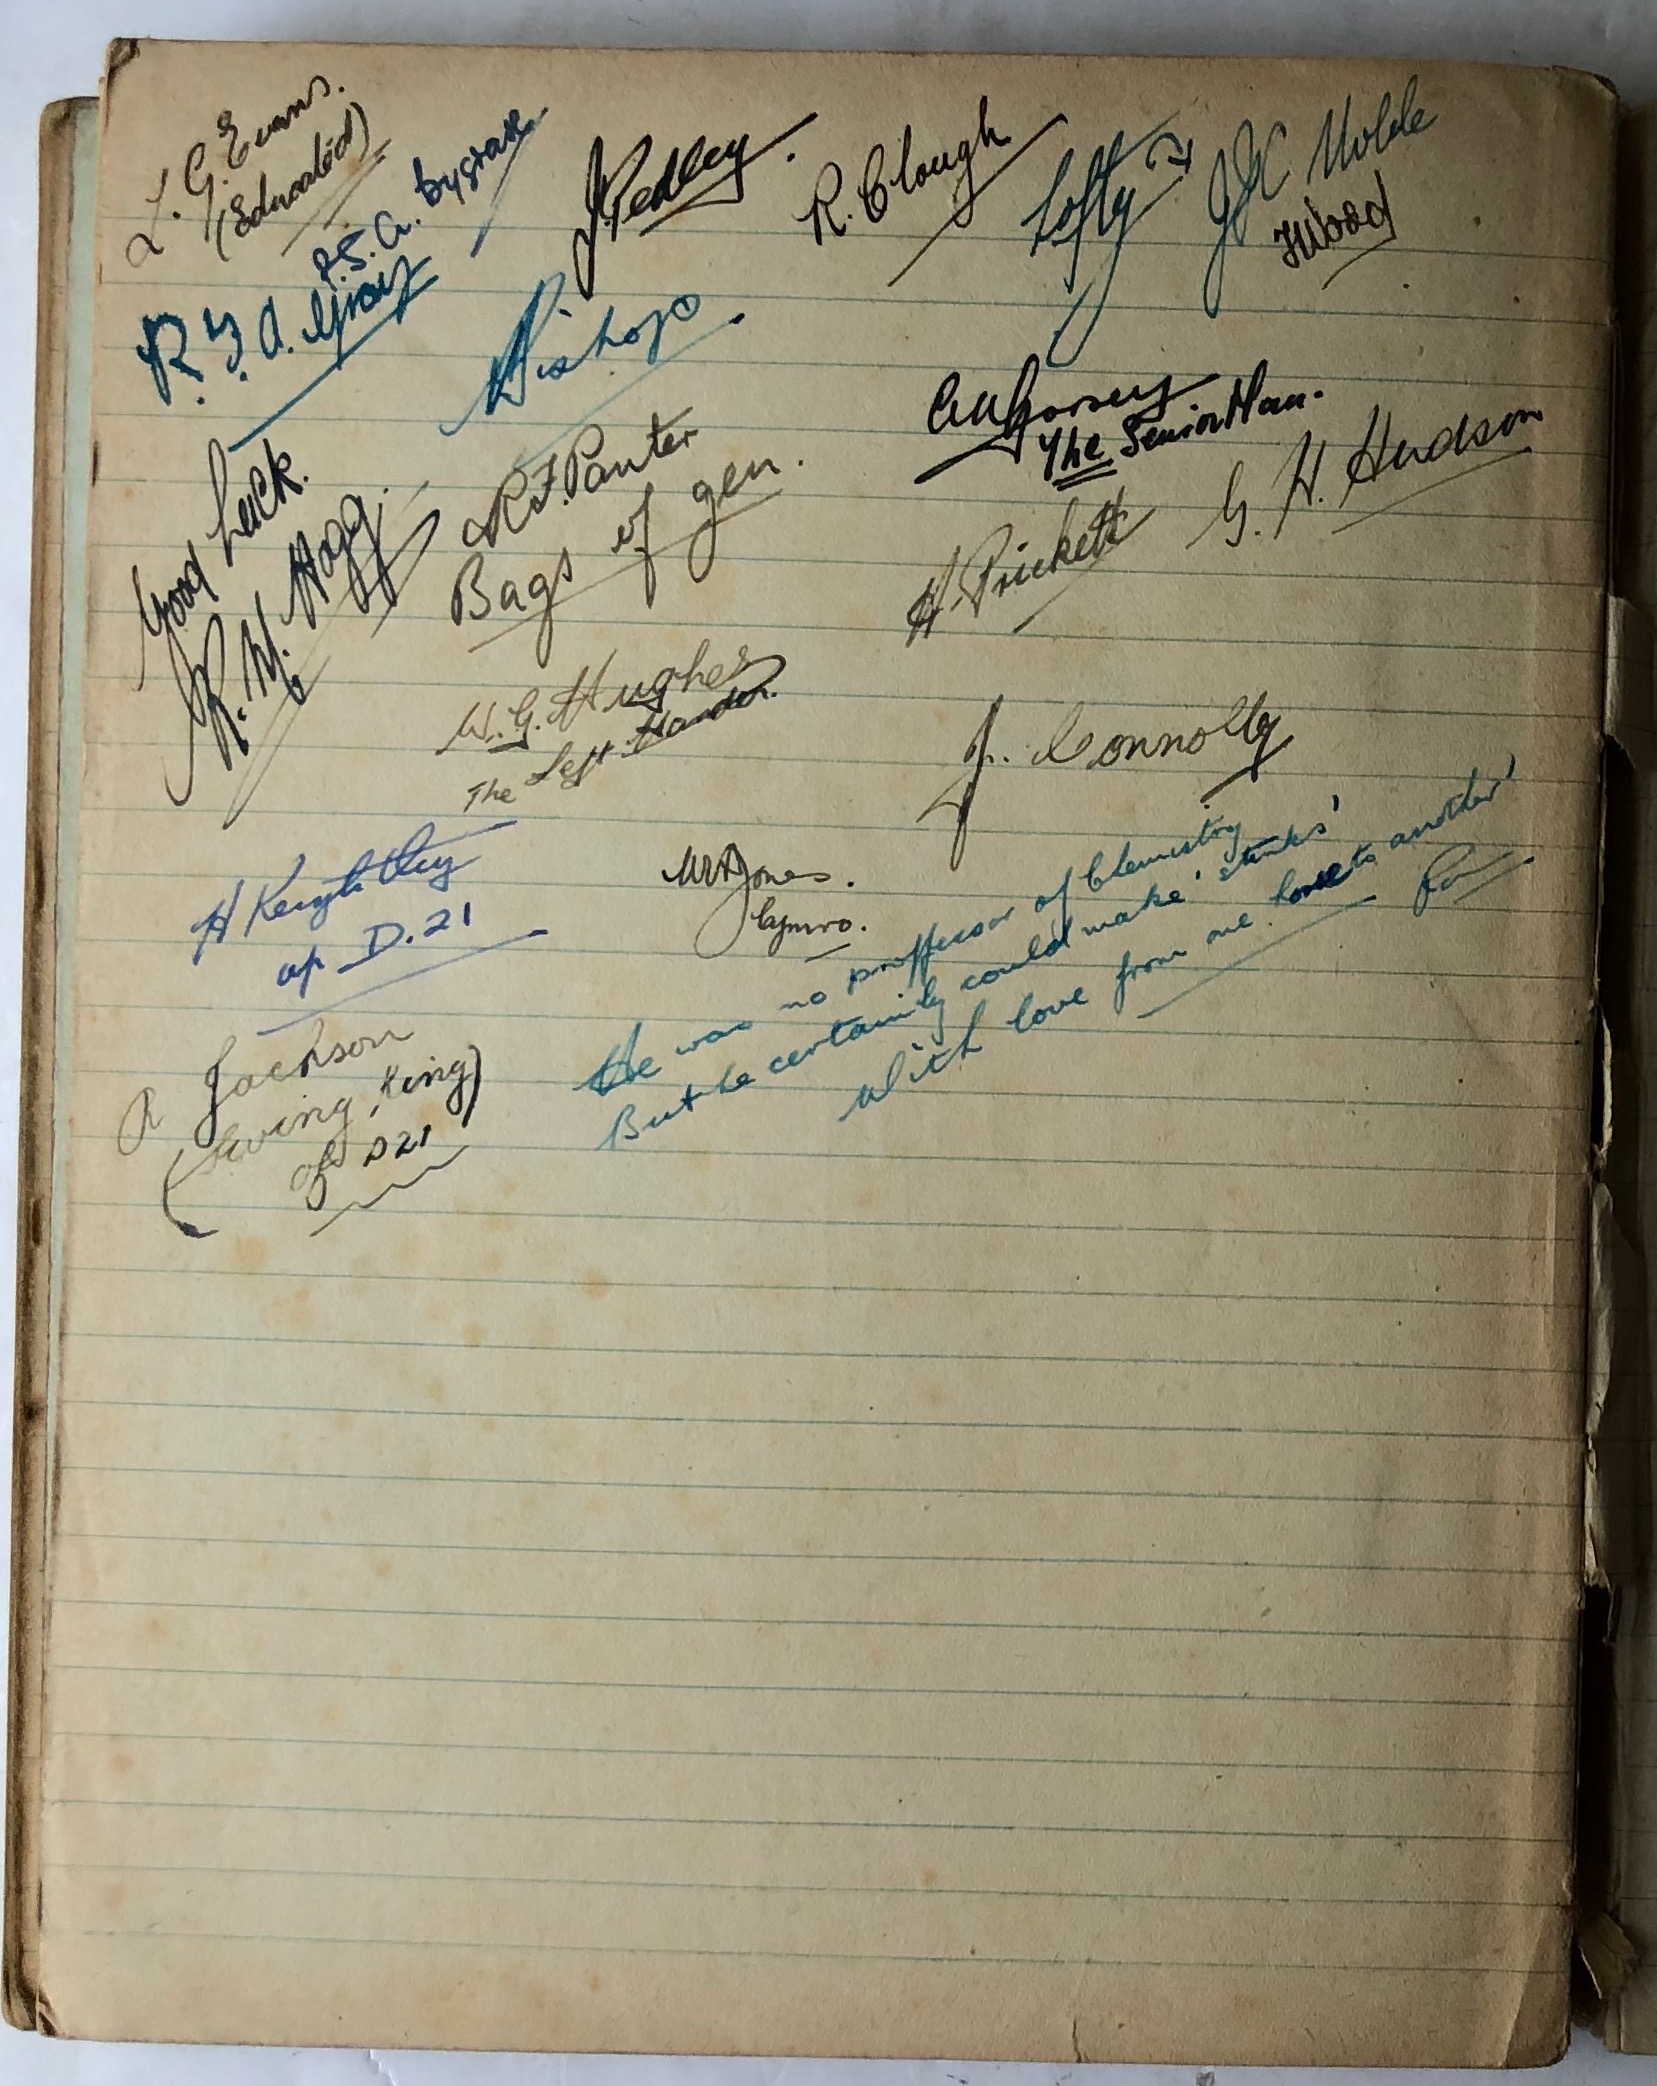 L. G. Evans.
(Educated)
P.S.A. Bygrave
J. Pedley.
R. Clough
Lofty
J J C Noble
J Wood
R. Y. A. Gray
Bishop.
The Senior Man.
Good Luck.
R. M. Hogg.
R. F. Panter
Bags of gen.
H. Prickett
G. H. Hudson
W. G. Hughes
The Left Hander.
J. Connolly
H Keightley
of D.21
W H Jones.
Cymro.
He was no proffessor of Chemistry
But he certainly could make 'stinks'
With love from one to another'
Ron
R Jackson
(Swing King)
of D21